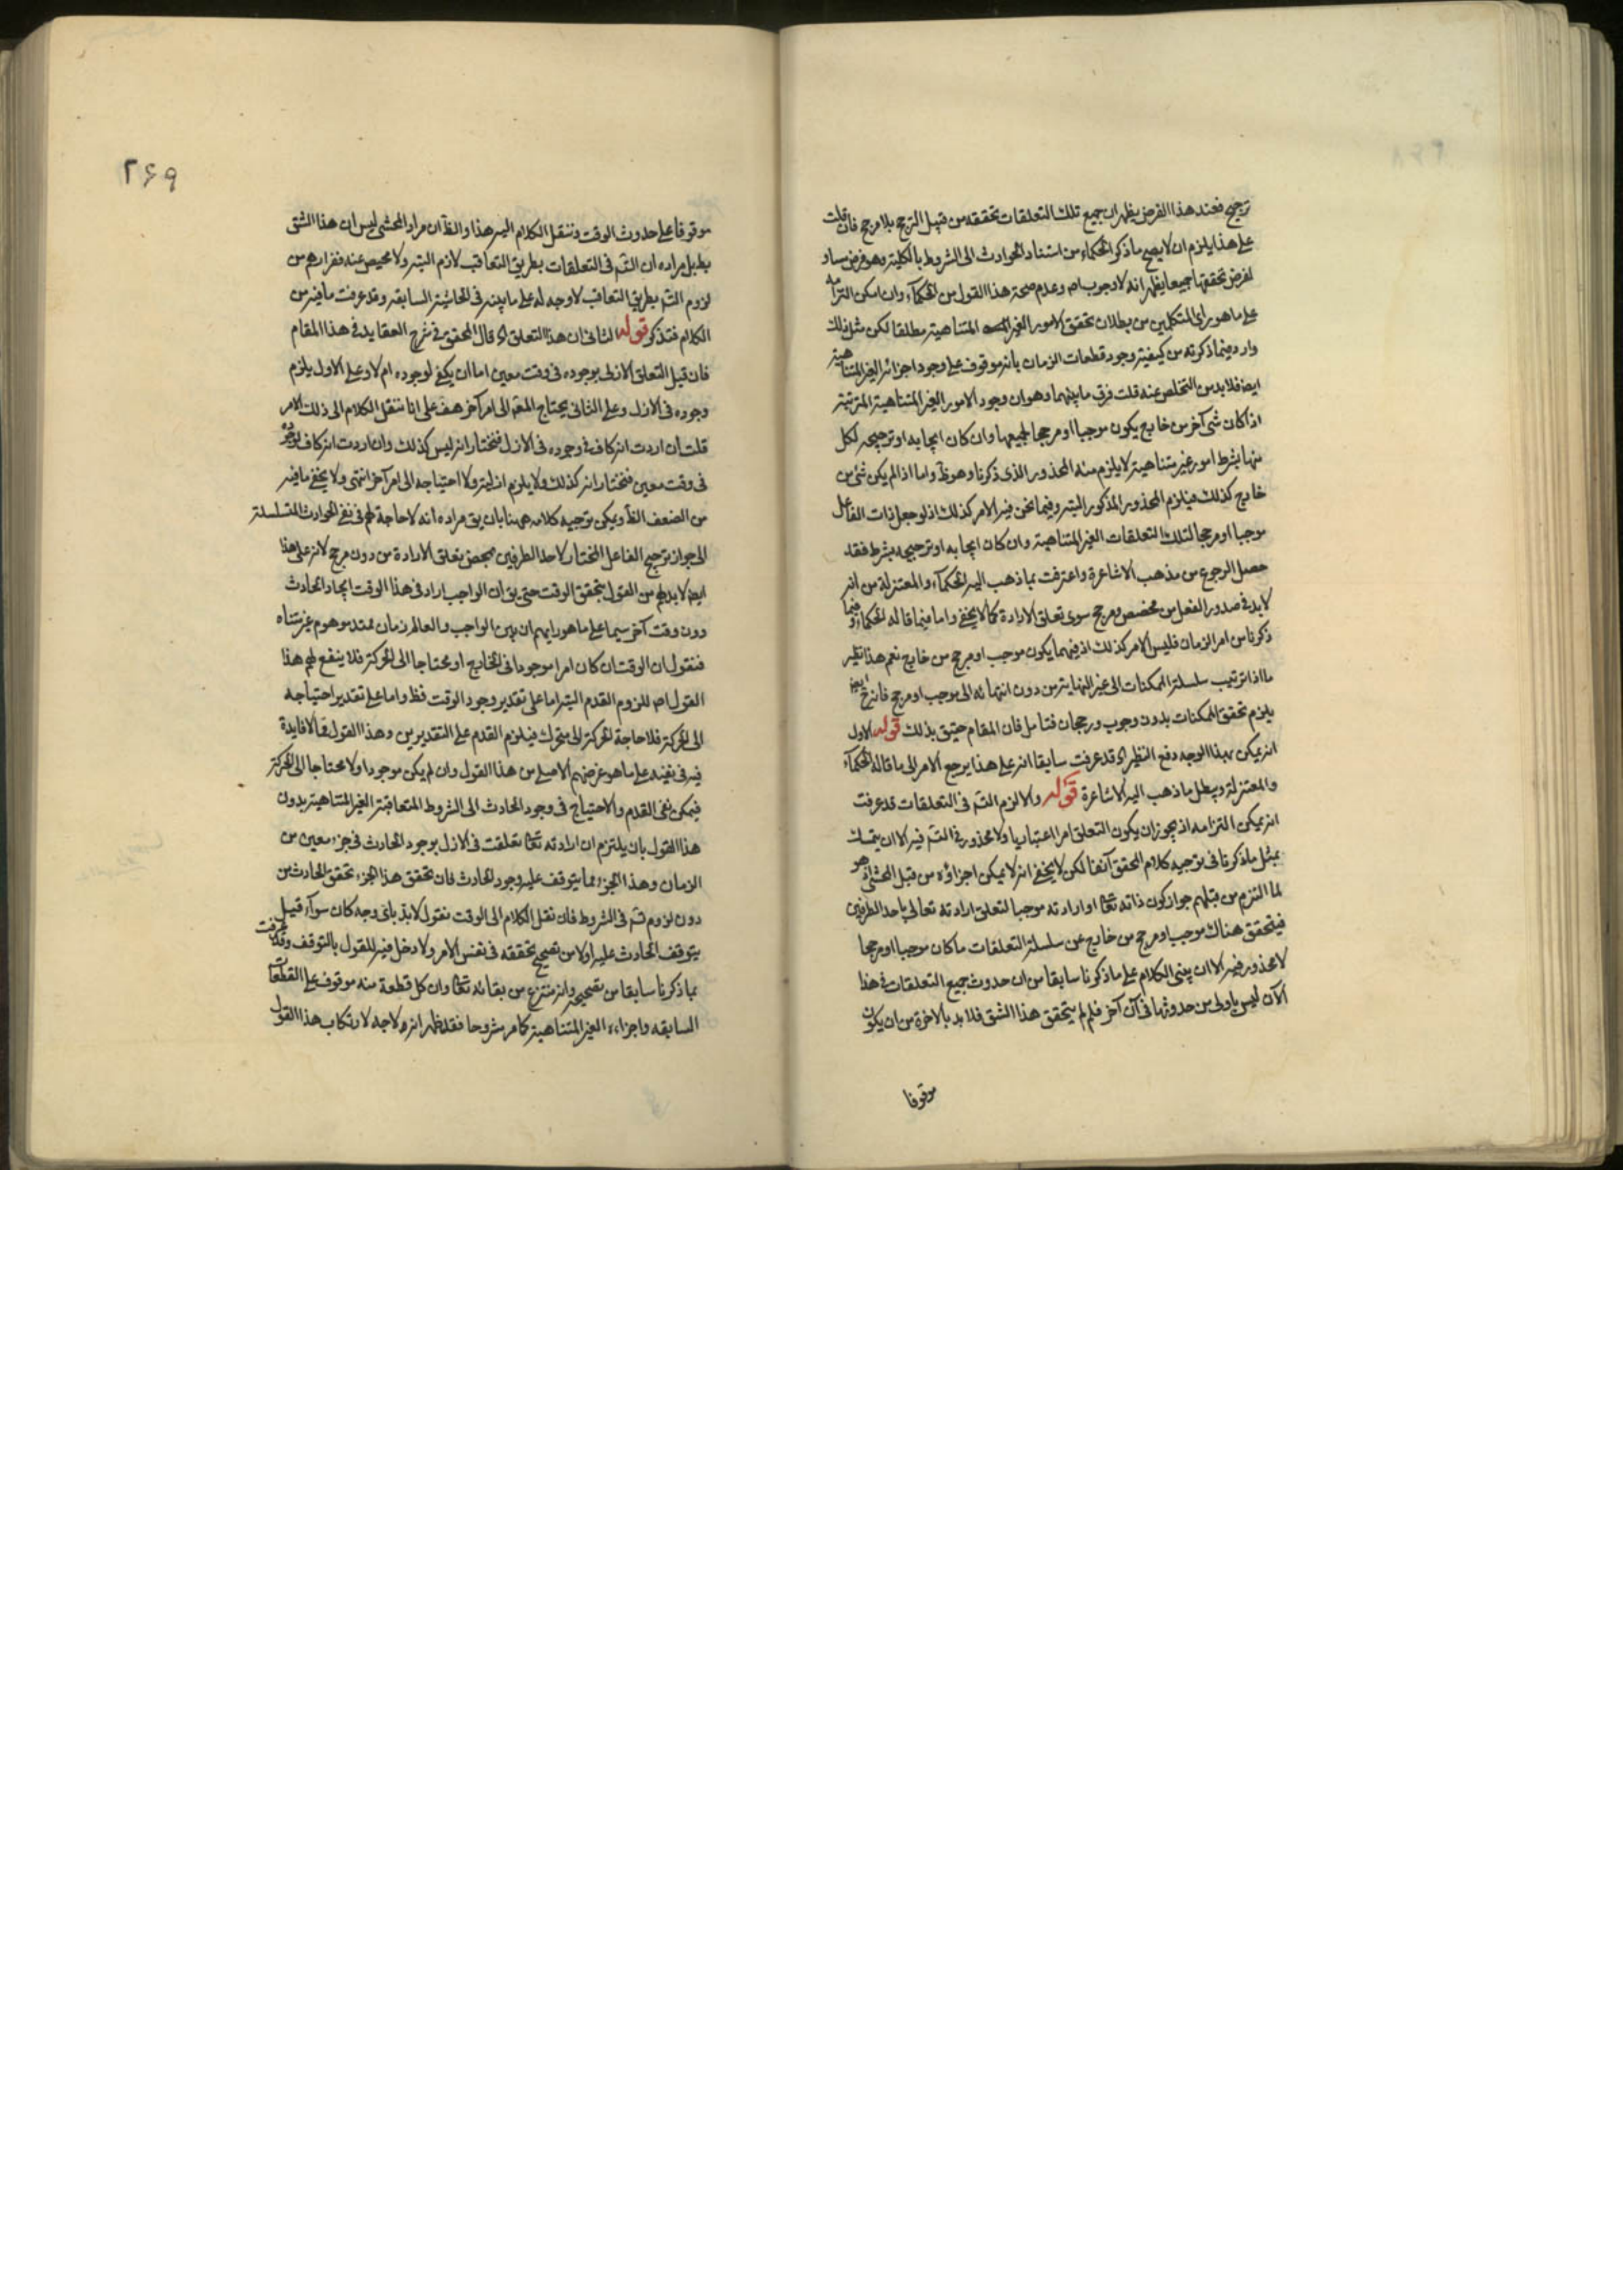 ترجيح فعند هذا الفرض يظهر ان جميع تلك التعلقات تحققه من قبيل الترجح بلا مرجح فان قلت
على هذا يلزم ان لا يصح ما ذكر الحكماء من استناد الحوادث الى الشروط بالكلية وهو فرض مساو
لفرض تحققها جميعا يظهر انه لا وجوب اصـ وعدم صحة هذا القول من الحكماء وان امكن التزامه
على ما هو راى المتكلمين من بطلان تحقق الامور الغير المتناهية مطلقا لكن مثل ذلك
وارد فيما ذكرته من كيفية وجود قطعات الزمان بانه موقوف على وجود اجزائه الغير المتناهية
ايضـ فلا بد من التخلص عنه قلت فرق ما بينهما وهو ان وجود الامور الغير المتناهية المترتبة
اذا كان شى آخر من خارج يكون موجبا او مرجحا لجميعها وان كان ايجابه او ترجيحه لكل
منها بشرط امور غير متناهية لا يلزم منه المحذور الذى ذكرنا وهو ظـ واما اذا لم يكن شى من
خارج كذلك فيلزم المحذور المذكور البتة وفيما نحن فيه الامر كذلك اذ لو جعل ذات الفاعل
موجبا او مرجحا لتلك التعلقات الغير المتناهية وان كان ايجابه او ترجيحه بشرط فقد
حصل الرجوع من مذهب الاشاعرة واعترفت بما ذهب اليه الحكماء والمعتزلة من انه
لا بد فى صدور الفعل من مخصص ومرجح سوى تعلق الارادة كما لا يخفى واما فيما قاله الحكماء وفيما
ذكرنا من امر الزمان فليس الامر كذلك اذ فيهما يكون موجب او مرجح من خارج نعم هذا نظير
ما اذا ترتب سلسلة الممكنات الى غير النهاية من دون انتهائه الى موجب او مرجح فانه ح ايضـ
يلزم تحقق الممكنات بدون وجوب ورجحان فتامل فان المقام حقيق بذلك قوله الاول
انه يمكن بهذا الوجه دفع النظر اه قد عرفت سابقا انه على هذا يرجع الامر الى ما قاله الحكماء
والمعتزلة ويبطل ما ذهب اليه الاشاعرة قوله والا لزم التسـ فى التعلقات قد عرفت
انه يمكن التزامه اذ يجوز ان يكون التعلق امرا اعتباريا ولا محذور فى التسـ فيه الا ان يتمسك
بمثل ما ذكرنا فى توجيه كلام المحقق آنفا لكن لا يخفى انه لا يمكن اجزاؤه من قبل المحشى اذ هو
لما التزم من قبلهم جواز كون ذاته تعـ او ارادته موجبا لتعلق ارادته تعالى باحد الطرفين
فيتحقق هناك موجب او مرجح من خارج عن سلسلة التعلقات ما كان موجبا او مرجحا
لا محذور فيه الا ان يبنى الكلام على ما ذكرنا سابقا من ان حدوث جميع التعلقات فى هذا
الآن ليس باولى من حدوثها فى آن آخر فلم لم يتحقق هذا الشق فلا بد بالاخرة من ان يكون
موقوفا
٢۶۹
موقوفا على حدوث الوقت وننقل الكلام اليه هذا والظـ ان مراد المحشى ليس ان هذا الشق
بط بل مراده ان التسـ فى التعلقات بطريق التعاقب لازم البتة ولا محيص عنه ففرارهم من
لزوم التسـ بطريق التعاقب لا وجه له على ما بينه فى الحاشية السابقة وقد عرفت ما فيه من
الكلام فتذكر قوله الثانى ان هذا التعلق اه قال المحقق فى شرح العقايد فى هذا المقام
فان قيل التعلق الازلى بوجوده فى وقت معين اما ان يكفى لوجوده ام لا وعلى الاول يلزم
وجوده فى الازل وعلى الثانى يحتاج المعـ الى امر آخر هف على انا ننقل الكلام الى ذلك الامر
قلت ان اردت انه كاف فى وجوده فى الازل فنختار انه ليس كذلك وان اردت انه كاف بوجوده
فى وقت معين فنختار انه كذلك ولا يلزم ازليته ولا احتياجه الى امر آخر انتهى ولا يخفى ما فيه
من الضعف الظـ ويمكن توجيه كلامه ههنا بان يق مراده انه لا حاجة لهم فى نفى الحوادث المتسلسلة
الى جواز ترجيح الفاعل المختار لاحد الطرفين بمحض تعلق الارادة من دون مرجح لانه على هذا
ايضـ لا بد لهم من القول بتحقق الوقت حتى يق ان الواجب اراد فى هذا الوقت ايجاد الحادث
دون وقت آخر سيما على ما هو رايهم ان بين الواجب والعالم زمان ممتد موهوم غير متناه
فنقول ان الوقت ان كان امرا موجودا فى الخارج او محتاجا الى الحركة فلا ينفع لهم هذا
القول اصـ للزوم القدم البتة اما على تقدير وجود الوقت فظـ واما على تقدير احتياجه
الى الحركة فلا حاجة الحركة الى متحرك فيلزم القدم على التقديرين وهذا القول مما لا فايدة
فيه فى نفيه على ما هو غرضهم الاصلى من هذا القول وان لم يكن موجودا ولا محتاجا الى الحركة
فيمكن نفى القدم والاحتياج فى وجود الحادث الى الشروط المتعاقبة الغير المتناهية بدون
هذا القول بان يلتزم ان ارادته تعـ تعلقت فى الازل بوجود الحادث فى جزء معين من
الزمان وهذا الجزء مما يتوقف عليه وجود الحادث فان تحقق هذا الجزء تحقق الحادث من
دون لزوم تسـ فى الشروط فان نقل الكلام الى الوقت نقول لا بد باى وجه كان سواء قيل
يتوقف الحادث عليه اولا من تصحيح تحققه فى نفس الامر ولا دخل فيه للقول بالتوقف وقد عرفت
بما ذكرنا سابقا من تصحيحه وانه منتزع من بقائه تعـ وان كل قطعة منه موقوف على القطعات
السابقه واجزاءه الغير المتناهية كما مر مشروحا فقد ظهر انه لا وجه لارتكاب هذا القول